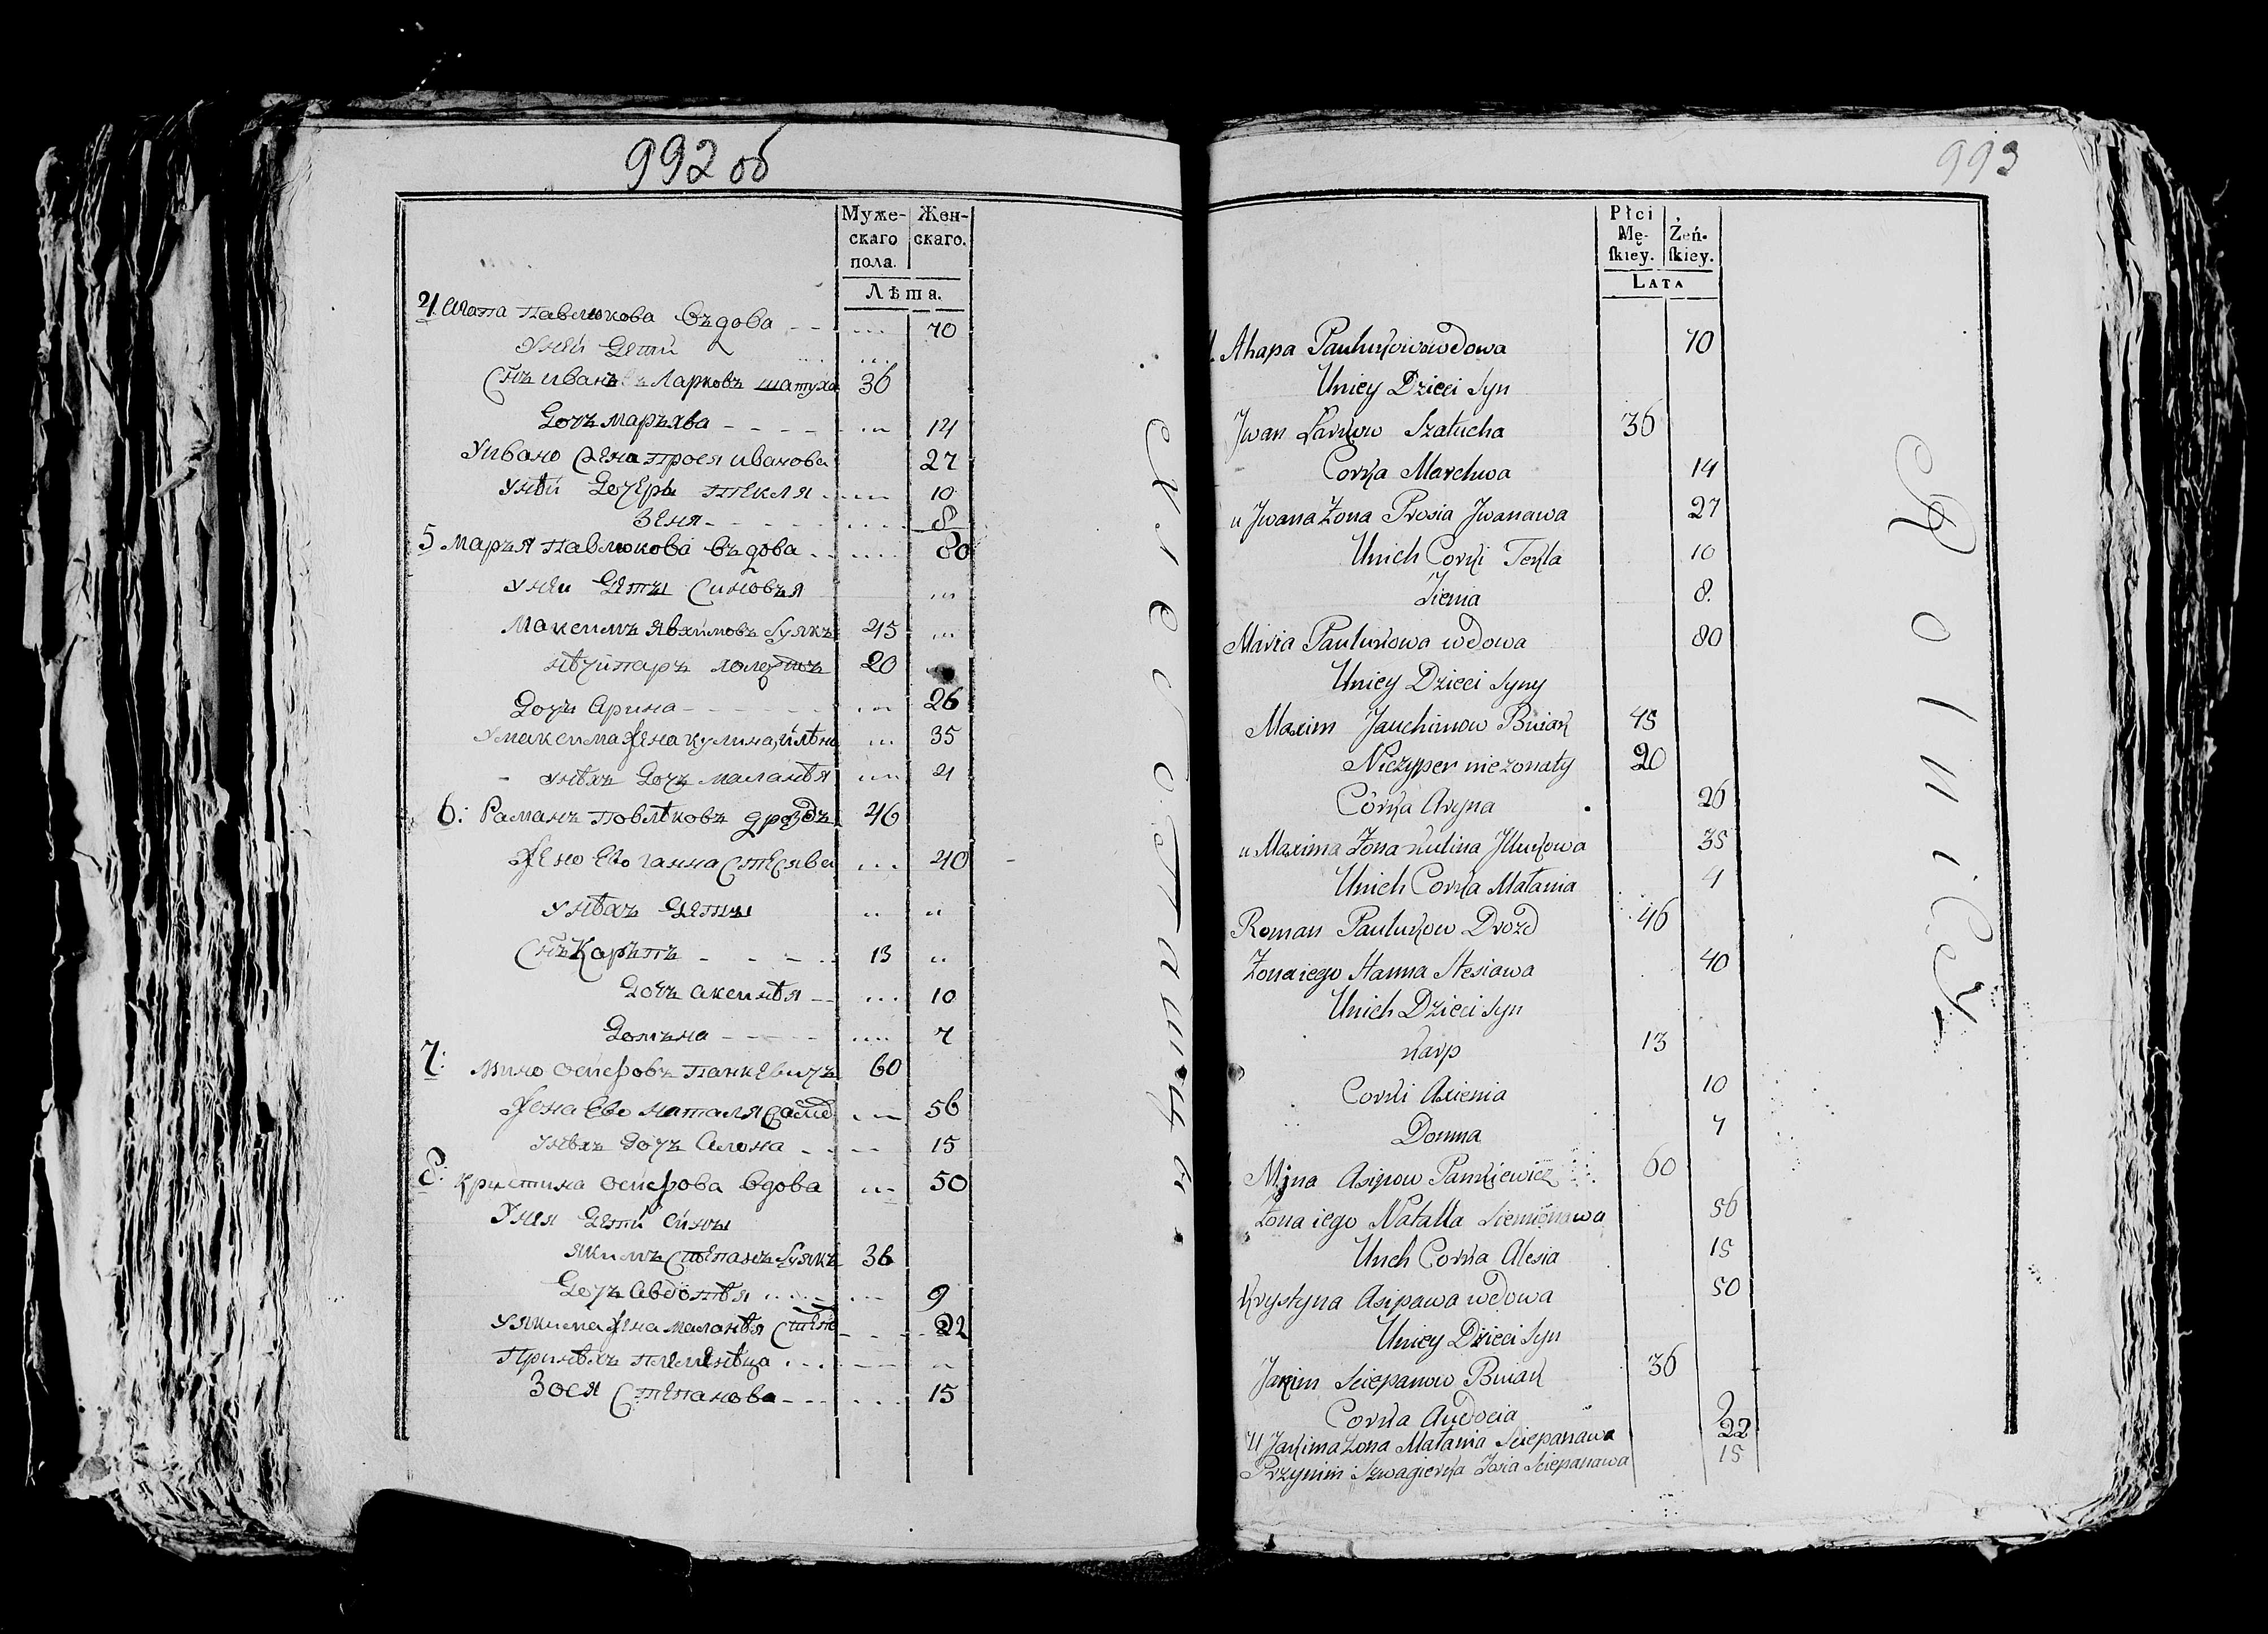 992 об
Муже- Жен-
скаго скаго.
пола.
Лѣта.
4 Агапа Павлюкова въдова 70
У ней Дети
Снъ иванъ Ларковъ шатуха 36
Дочъ маръхва 14
У ивано Жена прося иванова 27
У нѣй Дочерь текля 10
Зеня 8
5 маръя павлюкова въдова 80
У неи Дети Синовъя
Максимъ явхимовъ буякъ 45
нѣчипаръ холостъ 20
Дочъ Арина 26
У максима Жена кулина 35
у нѣхъ Дочъ маланѣя 4
6: Раманъ повлѣковъ дроздъ 46
Жено Ево ганна Стесява 40
У нѣхъ Дети
Снъ Каръпъ 13
Дочъ аксинѣя 10
Домъна 7
7: Мино осиповъ панкевичъ 60
Жена Ево наталя 56
У нѣхъ Дочъ Алена 15
8: кристина осипова вдова 50
У нея Дети сины
якимъ Степанъ буякъ 36
Дочъ авдотѣя 9
У якима Жена маланѣя Степа 22
При нѣхъ племенѣца
Зося Степанова 15
Крестьянъ
993
Płci
Mę- Żeń-
ſkiey. ſkiey.
LATA
Ahapa Paulukowa wdowa 70
Uniey Dzieci Syn
Jwan Larkow Szatucha 36
Corka Marchwa 14
u Jwana Zona Prosia Jwanawa 27
Unich Corki Tekla 10
Zienia 8.
Maria Paulukowa wdowa 80
Uniey Dzieci Syny
Maxim Jauchimow Buiak 45
Niczyper niezonaty 20
Córka Aryna 26
u Maxima Zona Kulina Jllukowa 35
Unich Corka Małania 4
Roman Paulukow Drozd 46
Zona iego Hanna Stesiawa 40
Unich Dzieci Syn
Karp 13
Corki Axienia 10
Domna 7
Mina Asipow Pankiewicz 60
Zona iego Natalla Siemionawa 56
Unich Corka Alesia 15
Krystyna Asipawa wdowa 50
Uniey Dzieci Syn
Jakim Sciepanow Buiak 36
Corka Audocia 9
U Jakima Zona Małania Sciepanawa 22
Przynim Szwagierka Zosia Sciepanawa 15
Rolnicy